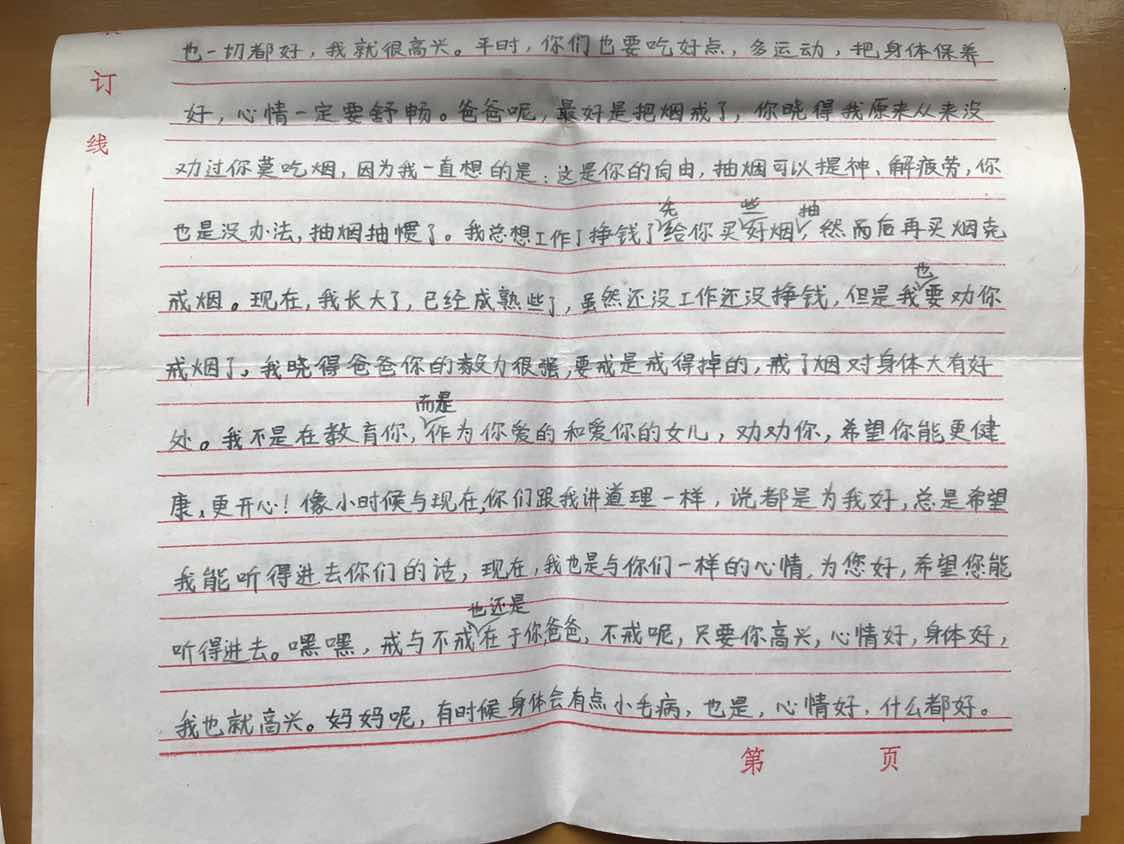 订
线
也一切都好，我就很高兴。平时，你们也要吃好点，多运动，把身体保养
好，心情一定要舒畅。爸爸呢，最好是把烟戒了，你晓得我原来从来没
劝过你莫吃烟，因为我一直想的是：这是你的自由，抽烟可以提神、解疲劳，你
也是没办法，抽烟抽惯了。我总想工作了挣钱了先给你买些好烟抽，然而后再买烟克
戒烟。现在，我长大了，已经成熟些了，虽然还没工作还没挣钱，但是我也要劝你
戒烟了，我晓得爸爸你的毅力很强，要戒是戒得掉的，戒了烟对身体大有好
处。我不是在教育你，而是作为你爱的和爱你的女儿，劝劝你，希望你能更健
康，更开心！像小时候与现在，你们跟我讲道理一样，说都是为我好，总是希望
我能听得进去你们的话，现在，我也是与你们一样的心情，为您好，希望您能
听得进去。嘿嘿，戒与不戒也还是在于你爸爸，不戒呢，只要你高兴，心情好，身体好，
我也就高兴。妈妈呢，有时候身体会有点小毛病，也是，心情好，什么都好。
第 页